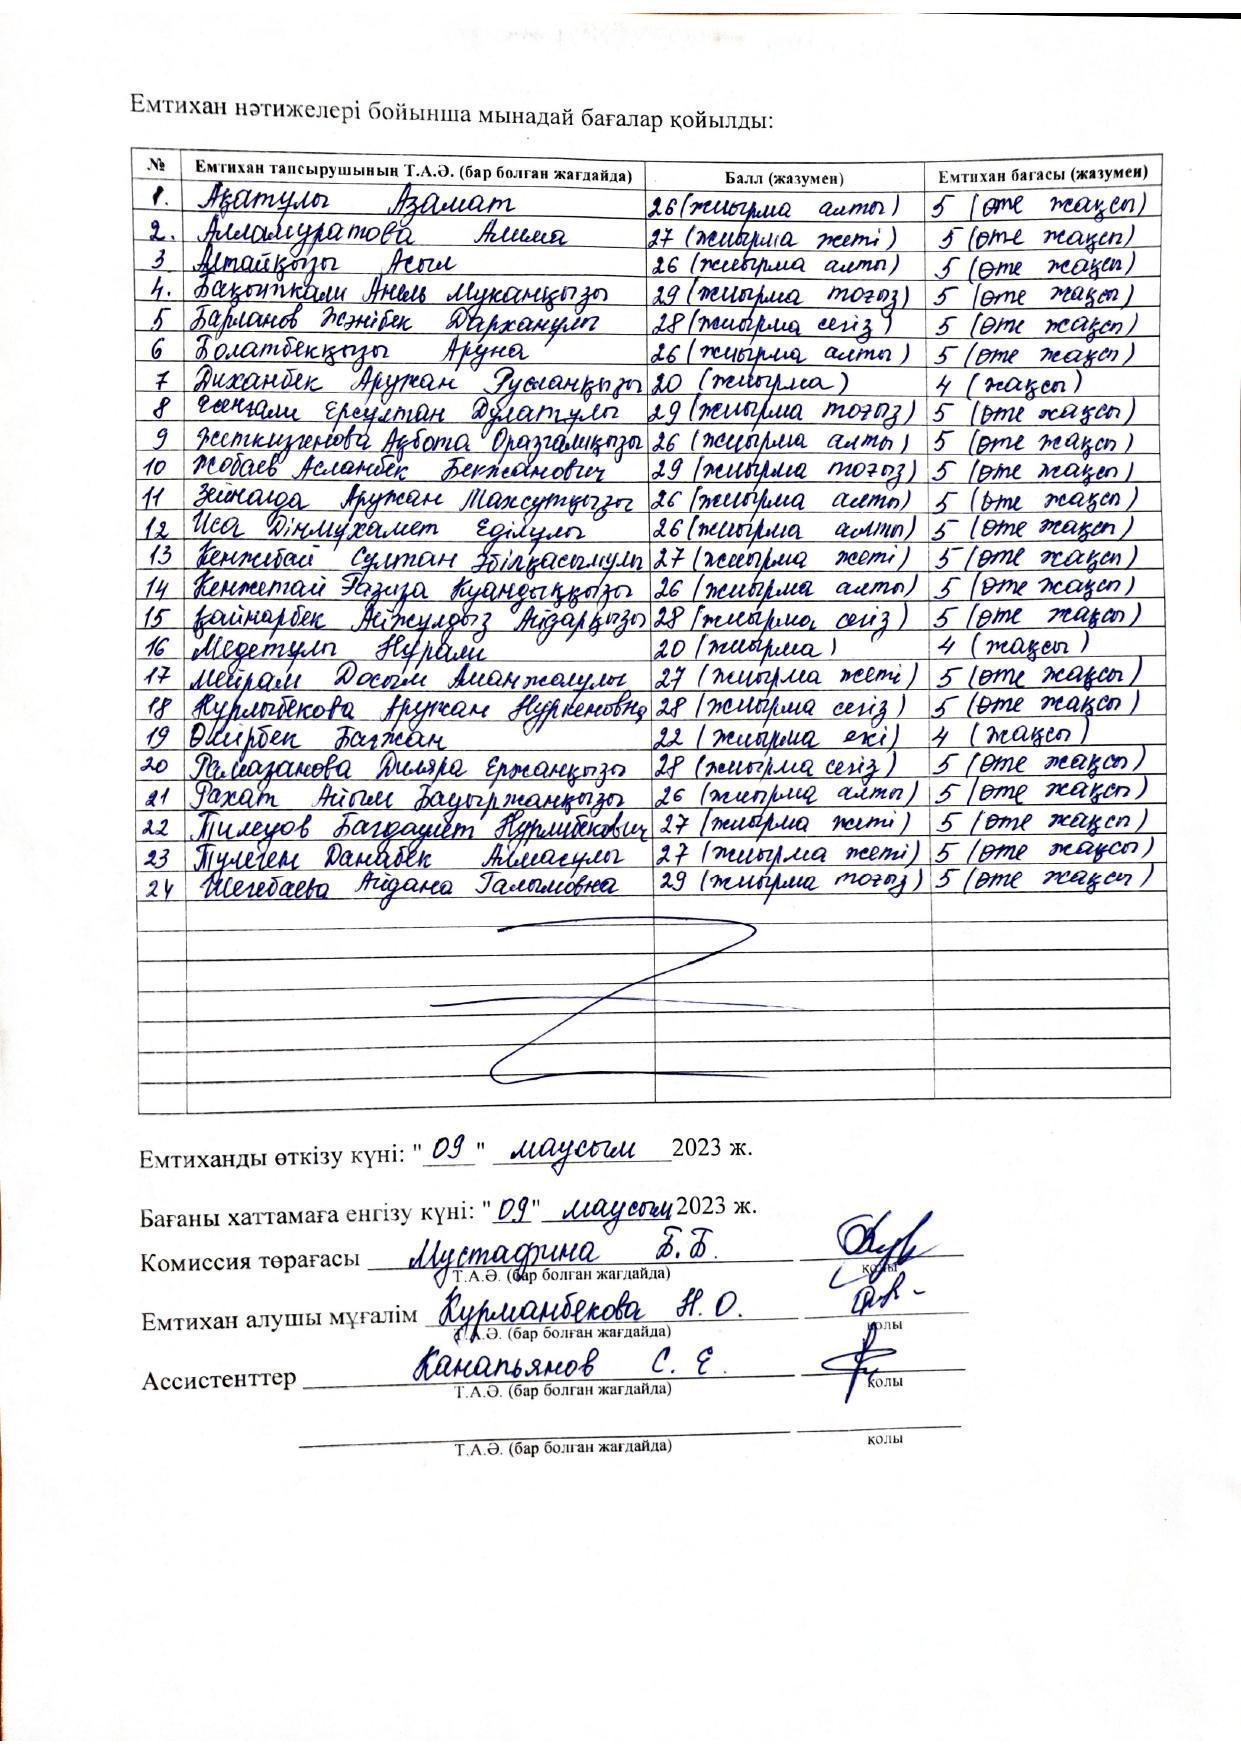 Емтихан нәтижелері бойынша мынадай бағалар қойылды:
№ Емтихан тапсырушының Т.А.Ә. (бар болған жағдайда) Балл (жазумен) Емтихан бағасы (жазумен)
1. Азатулы Азамат 26 (жиырма алты) 5 (өте жақсы)
2. Алламуратова Алима 27 (жиырма жеті) 5 (өте жақсы)
3 Алтайқызы Асыл 26 (жиырма алты) 5 (өте жақсы)
4. Бақытқали Анель Муканқызы 29 (жиырма тоғыз) 5 (өте жақсы)
5 Барланов Жәнібек Дарханұлы 28 (жиырма сегіз) 5 (өте жақсы)
6 Болатбекқызы Аруна 26 (жиырма алты) 5 (өте жақсы)
7 Диханбек Аружан Русланқызы 20 (жиырма) 4 (жақсы)
8 Есенгали Ерсултан Дулатулы 29 (жиырма тоғыз) 5 (өте жақсы)
9 Жеткизгенова Ақбота Оразғалиқызы 26 (жиырма алты) 5 (өте жақсы)
10 Жобаев Асланбек Бекжанович 29 (жиырма тоғыз) 5 (өте жақсы)
11 Зейналда Аружан Махсутқызы 26 (жиырма алты) 5 (өте жақсы)
12 Иса Дінмухамет Еділулы 26 (жиырма алты) 5 (өте жақсы)
13 Кенжебай Султан Әбілқасымулы 27 (жиырма жеті) 5 (өте жақсы)
14 Кенжетай Газиза Куандыққызы 26 (жиырма алты) 5 (өте жақсы)
15 Қайнарбек Айжулдыз Айзарқызы 28 (жиырма сегіз) 5 (өте жақсы)
16 Медетулы Нурали 20 (жиырма) 4 (жақсы)
17 Мейрам Досым Аманжолулы 27 (жиырма жеті) 5 (өте жақсы)
18 Нурлыбекова Аружан Нуркеновна 28 (жиырма сегіз) 5 (өте жақсы)
19 Өмірбек Бағжан 22 (жиырма екі) 4 (жақсы)
20 Рамазанова Диляра Ержанқызы 28 (жиырма сегіз) 5 (өте жақсы)
21 Рахат Айым Бауыржанқызы 26 (жиырма алты) 5 (өте жақсы)
22 Тилеуов Багдаулет Нурлибекович 27 (жиырма жеті) 5 (өте жақсы)
23 Тулеген Данабек Алмасулы 27 (жиырма жеті) 5 (өте жақсы)
24 Шегебаева Айдана Галымовна 29 (жиырма тоғыз) 5 (өте жақсы)
Емтиханды өткізу күні: "09" маусым 2023 ж.
Бағаны хаттамаға енгізу күні: "09" маусым 2023 ж.
Комиссия төрағасы Мустафина Б.Б.
Т.А.Ә. (бар болған жағдайда) қолы
Емтихан алушы мұғалім Курманбекова Н.О.
Т.А.Ә. (бар болған жағдайда) қолы
Ассистенттер Канапьянов С. Е.
Т.А.Ә. (бар болған жағдайда) қолы
Т.А.Ә. (бар болған жағдайда) қолы